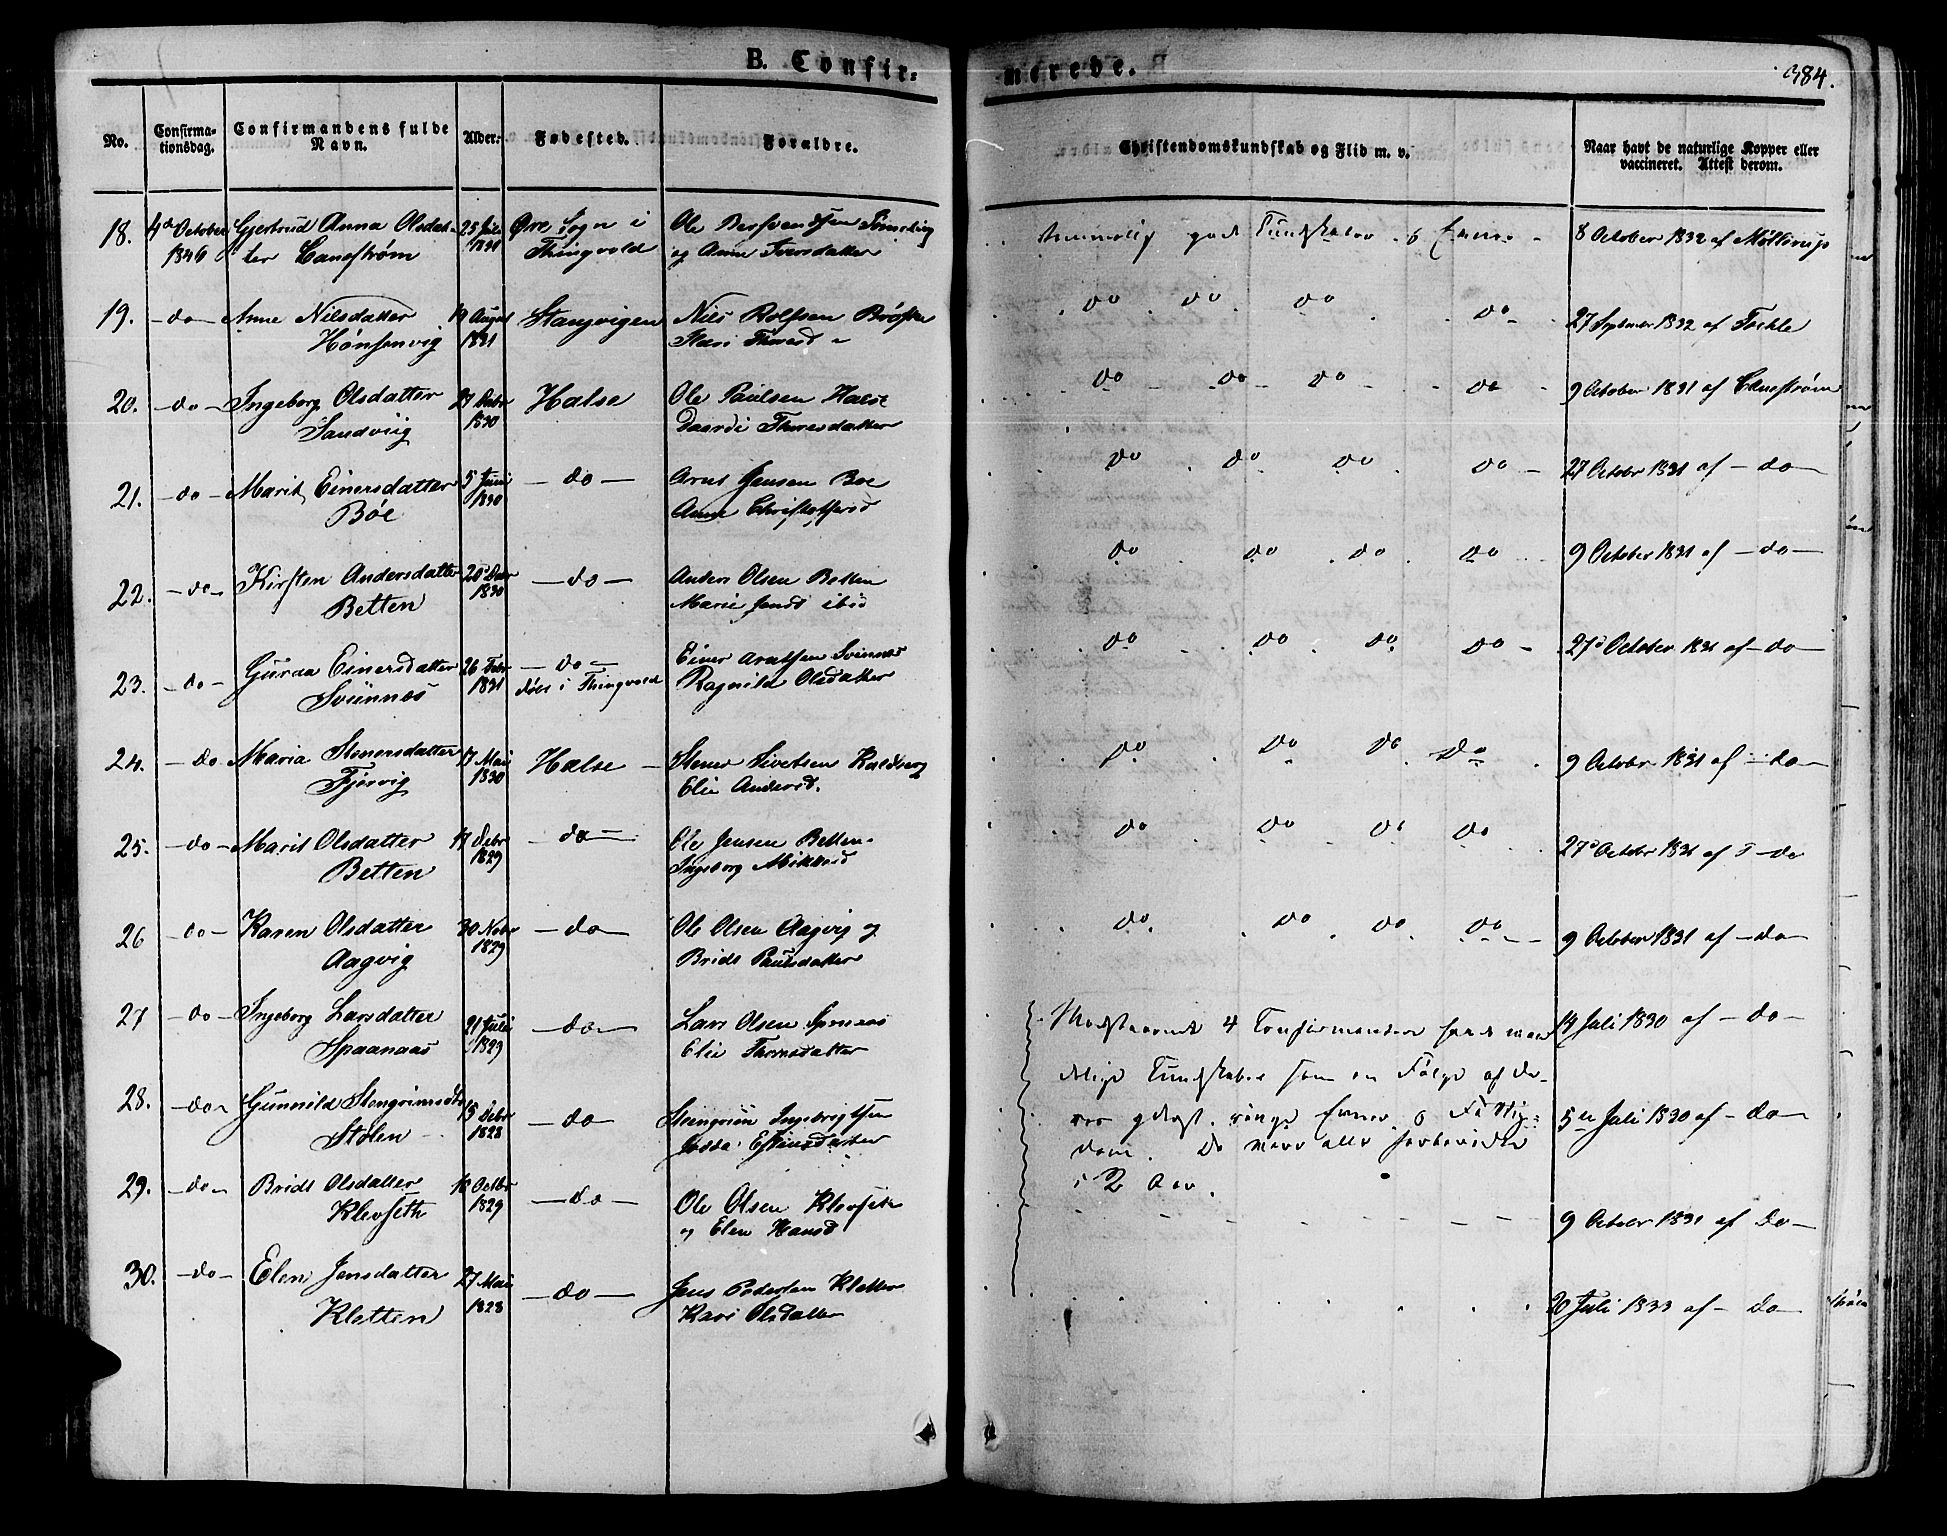 B. Confir-
merede.
384.
No.
Confirma-
tionsdag.
Confirmandens fulde
Navn.
Alder.
Fødested.
Forældre.
Christendomskundskab og Flid m. v.
Naar havt de naturlige Kopper eller
vaccineret. Attest derom.
18. 4de October Gjertrud Anna Olsdat- 25 Juli Øre Sogn i Ole
1846 ter Canestrøm 1831 Thingvold og Anne Iversdatter
Temmelig god Kundskaber og Evner 8 October 1832 af Møllerup
19. -do- Anne Nilsdatter 19 August Stangvigen Nils Rolfsen Brøske
Hønsenvig 1831 Kari Thoresd
do do do do 27 September 1832 af
20. -do- Ingeborg Olsdatter 27 Debr Halse Ole Paulsen Halse
Sandviig 1830 Thoresdatter
do do do do 9 October 1831 af Canestrøm
21. -do- Marit Einersdatter 5 Juni -do- Arnt Jensen Boe
Böe 1830 Anne Christophersd
do do do do 27 October 1831 af -do-
22. -do- Kirsten Andersdatter 20 Debr -do- Anders Olsen Betten
Betten 1830 Marie Jonsd ibid
do do do do 9 October 1831 af -do-
23. -do- Guraa Einersdatter 26 Febr -do- Einer Arntsen Sviinnes
Sviinnæs 1831 døbt i Thingvold Ragnild Olsdatter
do do do do 27de October 1831 af -do-
24. -do- Maria Stenersdatter 17 Mai Halse Stener Sivertsen
Fjærvig 1830 Elie Andersd.
do do do do 9 October 1831 af -do-
25. -do- Marit Olsdatter 17 Debr -do- Ole Jensen Betten
Betten 1829 Ingeborg Mikkelsd
do do do do 27de October 1831 af -do
26 -do- Karen Olsdatter 30 Nobr -do- Ole Olsen Aagvig og
Aagvig 1829 Bridt Paulsdatter
do do do do 9 October 1831 af -do-
27 -do- Ingeborg Larsdatter 21 Juli -do- Lars Olsen
Spaanaas 1829 Elie Thoresdatter
Modstaaende 4 Confirmander havde maa- 14 Juli 1830 af -do-
delige Kundskaber som en Følge af de-
28. -do- Gunnild Stengrimsdtr 15 Debr -do- Steengrim Ingebrigtsen
Stölen 1828 Estensdatter
res ringe Evner og Fattig- 5te Juli 1830 af -do-
dom. De vare alle forberedte
i 2 Aar.
29. -do- Bridt Olsdatter 18 Octbr -do- Ole Olsen Klevseth
Klevseth 1829 og Elen Hansd
9 October 1831 af do-
30. -do- Elen Jensdatter 27 Mai -do- Jens Pedersen Kletten
Kletten 1828 Kari Olsdatter
20 Juli 1833 af -do